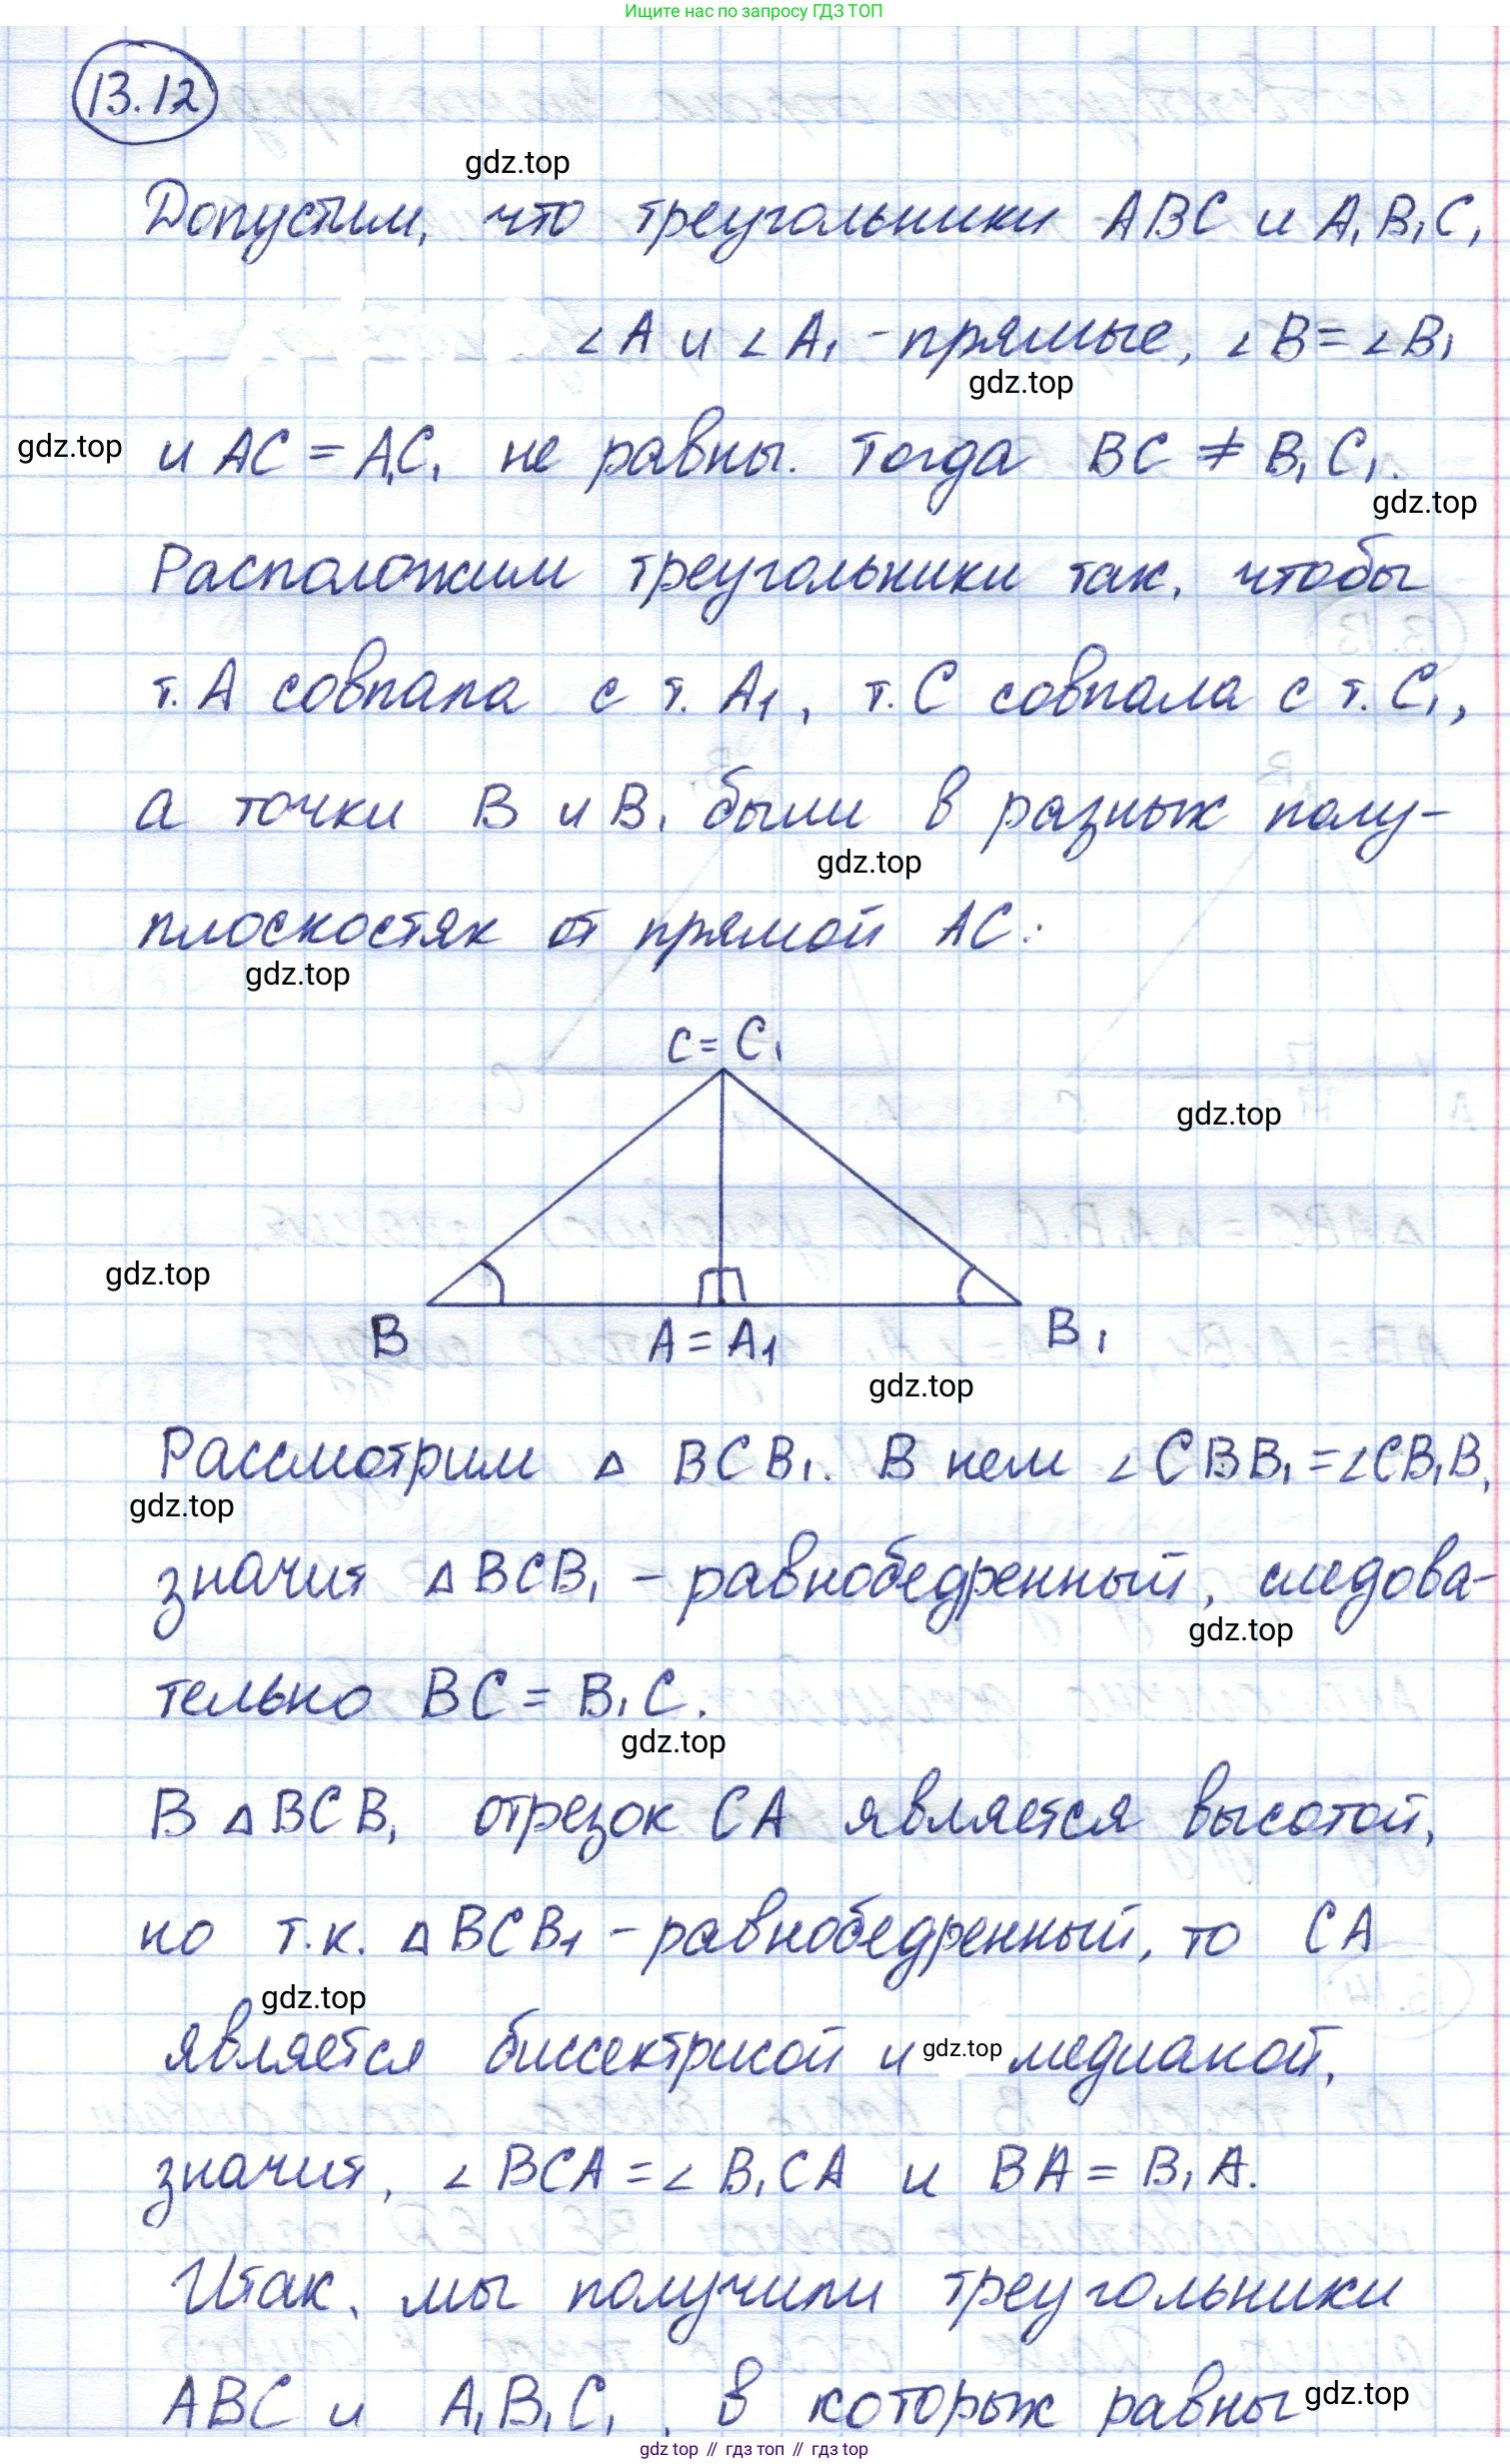 Ищите нас по запросу ГДЗ ТОП
13.12
gdz.top
Допустим, что треугольники ABC и A₁B₁C₁
∠A и ∠A₁ - прямые, ∠B = ∠B₁
gdz.top
gdz.top и AC = A₁C₁ не равны. Тогда BC ≠ B₁C₁.
gdz.top
Расположим треугольники так, чтобы
т. A совпала с т. A₁, т. C совпала с т. C₁,
а точки B и B₁ были в разных полу-
gdz.top
плоскостях от прямой AC:
gdz.top
C = C₁
gdz.top
gdz.top
B A = A₁ B₁
gdz.top
Рассмотрим △ BCB₁. В нем ∠CBB₁ = ∠CB₁B,
gdz.top
значит △BCB₁ - равнобедренный, следова-
gdz.top
тельно BC = B₁C.
gdz.top
В △BCB₁ отрезок CA является высотой,
но т.к. △BCB₁ - равнобедренный, то CA
gdz.top
является биссектрисой и gdz.top медианой,
значит, ∠BCA = ∠B₁CA и BA = B₁A.
Итак, мы получили треугольники
ABC и A₁B₁C₁, в которых равны gdz.top
gdz top // гдз топ // гдз top